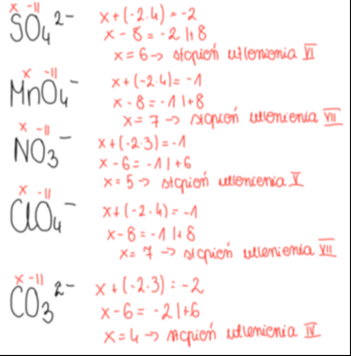 x -II
SO₄²⁻ x+(-2·4) = -2
x - 8 = -2 |+8
x = 6 -> stopień utlenienia VI
x -II
MnO₄⁻ x+(-2·4) = -1
x - 8 = -1 |+8
x = 7 -> stopień utlenienia VII
x -II
NO₃⁻ x+(-2·3) = -1
x - 6 = -1 |+6
x = 5 -> stopień utlenienia V
x -II
ClO₄⁻ x+(-2·4) = -1
x - 8 = -1 |+8
x = 7 -> stopień utlenienia VII
x -II
CO₃²⁻ x+(-2·3) = -2
x - 6 = -2 |+6
x = 4 -> stopień utlenienia IV